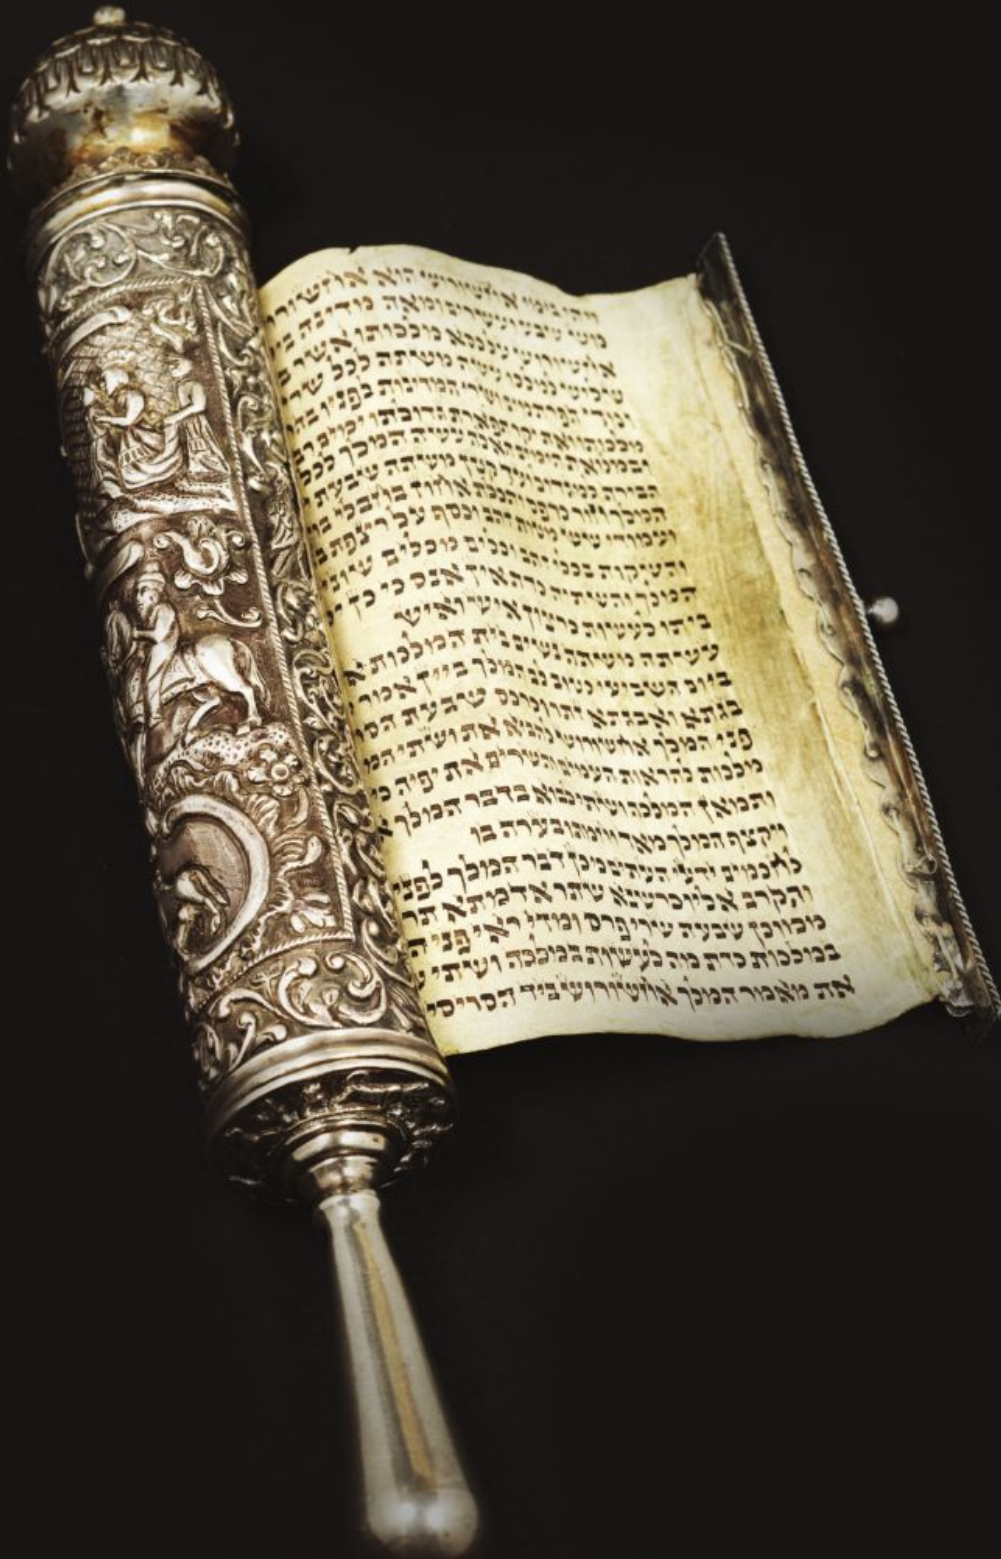 ויהי בימי אחשורוש הוא אחשורו
כוש שבע ועשרים ומאה מדינה
אחשורוש על כסא מלכותו אשר
שלוש למלכו עשה משתה לכל שרי
ומדי הפרתמים ושרי המדינות לפניו
מלכותו ואת יקר תפארת גדולתו ימים
ובמלואת הימים האלה עשה המלך לכל
הבירה למגדול ועד קטן משתה שבעת
המלך חור כרפס ותכלת אחוז בחבלי
ועמודי שש מטות זהב וכסף על רצפת
והשקות בכלי זהב וכלים מכלים שונים
המלך והשתיה כדת אין אנס כי כן
ביתו לעשות כרצון איש ואיש
עשתה משתה נשים בית המלכות
ביום השביעי כטוב לב המלך ביין אמר
בגתא ואבגתא זתר וכרכס שבעת הסרי
פני המלך אחשורוש להביא את ושתי המ
מלכות להראות העמים והשרים את יפיה כי
ותמאן המלכה ושתי לבוא בדבר המלך
ויקצף המלך מאד וחמתו בערה בו
לחכמים ידעי העתים כי כן דבר המלך לפני
והקרב אליו כרשנא שתר אדמתא תר
ממוכן שבעה שרי פרס ומדי ראי פני
במלכות כדת מה לעשות במלכה ושתי
את מאמר המלך אחשורוש ביד הסריסי